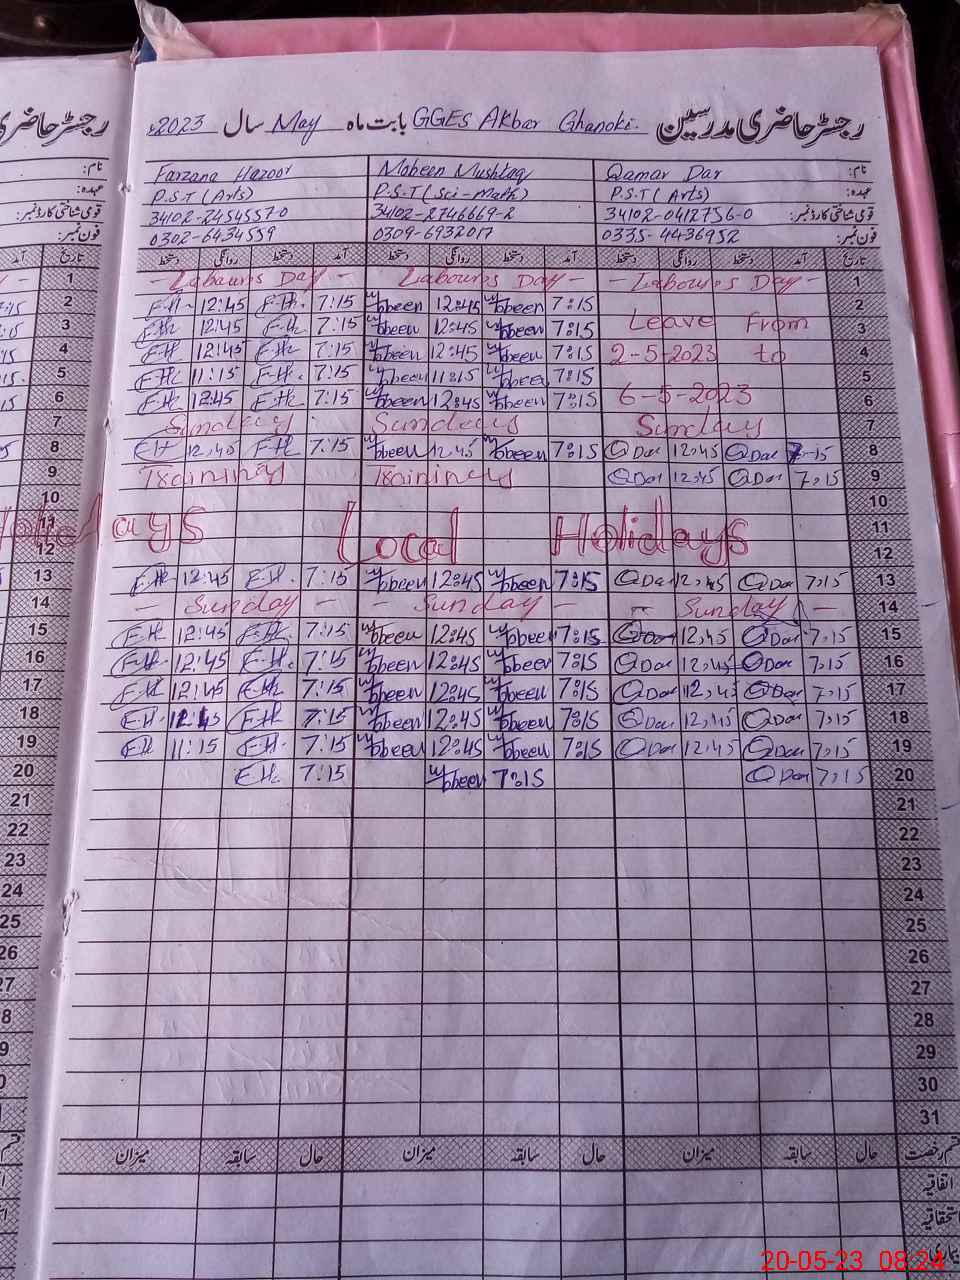 رجسٹر حاضری مدرسین GGES Akbar Ghanoke. بابت ماہ May سال 2023ء
نام: Qamar Dar Mobeen Mushtaq Farzana Hazoor
عہدہ: P.S.T (Arts) P.S.T (Sci-Math) P.S.T (Arts)
قومی شناختی کارڈ نمبر: 34102-0412756-0 34102-2746669-2 34102-2454557-0
فون نمبر: 0335-4436952 0309-6932017 0302-6434559
تاریخ آمد دستخط روانگی دستخط آمد دستخط روانگی دستخط آمد دستخط روانگی دستخط
1 - Labours Day - Labours Day - - Labours Day -
2 F.H 12:45 F.H. 7:15 Mobeen 12:45 Mobeen 7:15
3 F.H 12:45 F.H 7:15 Mobeen 12:45 Mobeen 7:15 Leave From
4 F.H 12:45 F.H 7:15 Mobeen 12:45 Mobeen 7:15 2-5-2023 to
5 F.H 11:15 F.H 7:15 Mobeen 11:15 Mobeen 7:15
6 F.H 12:45 F.H 7:15 Mobeen 12:45 Mobeen 7:15 6-5-2023
7 Sunday Sunday Sunday
8 F.H 12,45 F.H 7:15 Mobeen 12,45 Mobeen 7:15 Q Dar 12,45 Q Dar 7-15
9 Training Training Q Dar 12,45 Q Dar 7,15
10
11 Holidays Local Holidays
12
13 F.H 12:45 F.H. 7:15 Mobeen 12:45 Mobeen 7:15 Q Dar 12,45 Q Dar 7,15
14 - Sunday - - Sunday - - Sunday -
15 F.H 12:45 F.H. 7:15 Mobeen 12:45 Mobeen 7:15 Q Dar 12,45 Q Dar 7,15
16 F.H 12:45 F.H. 7:15 Mobeen 12:45 Mobeen 7:15 Q Dar 12,45 Q Dar 7,15
17 F.H 12:45 F.H 7:15 Mobeen 12:45 Mobeen 7:15 Q Dar 12,45 Q Dar 7,15
18 F.H. 12:45 F.H 7:15 Mobeen 12:45 Mobeen 7:15 Q Dar 12,45 Q Dar 7,15
19 F.H 11:15 F.H. 7:15 Mobeen 12:45 Mobeen 7:15 Q Dar 12,45 Q Dar 7,15
20 F.H 7:15 Mobeen 7:15 Q Dar 7,15
21
22
23
24
25
26
27
28
29
30
31
قسم رخصت حال سابقہ میزان حال سابقہ میزان حال سابقہ میزان
اتفاقیہ
استحقاقیہ
20-05-23 08:24